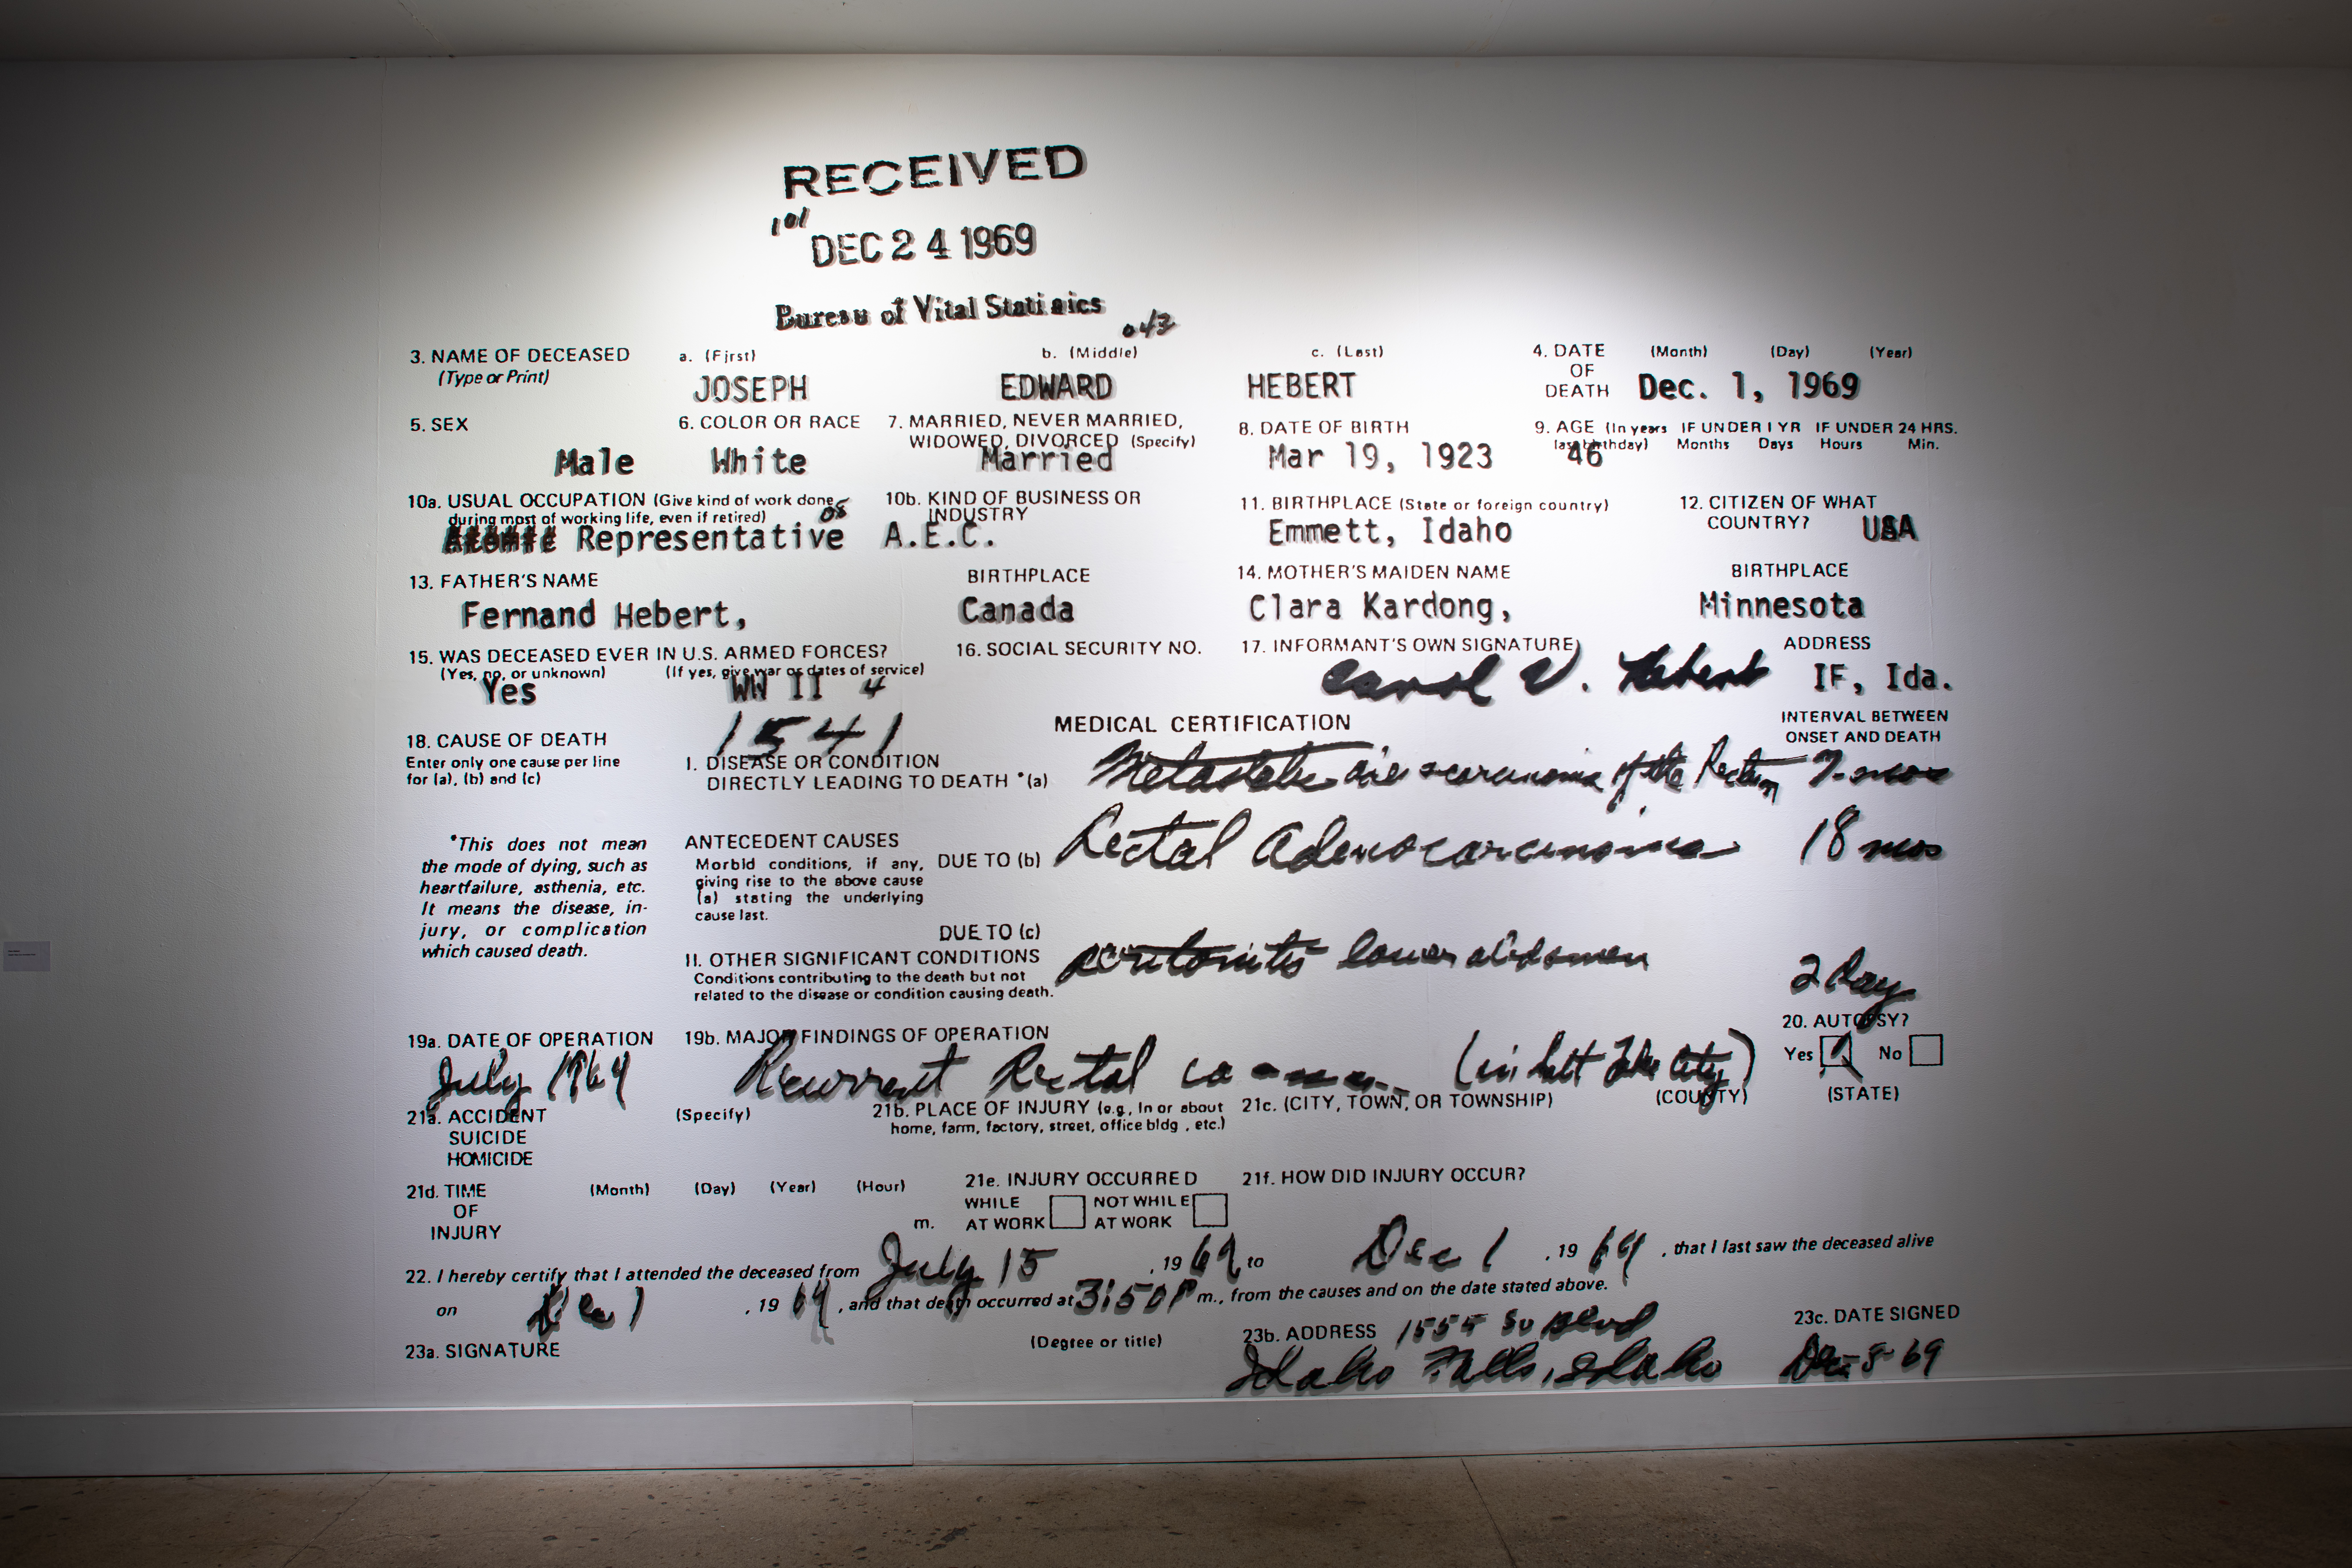 RECEIVED
101
DEC 24 1969
Bureau of Vital Statistics
043
3. NAME OF DECEASED a. (First) b. (Middle) c. (Last) 4. DATE (Month) (Day) (Year)
(Type or Print) OF
JOSEPH EDWARD HEBERT DEATH Dec. 1, 1969
5. SEX 6. COLOR OR RACE 7. MARRIED, NEVER MARRIED, 8. DATE OF BIRTH 9. AGE (In years IF UNDER 1 YR IF UNDER 24 HRS.
WIDOWED, DIVORCED (Specify) last birthday) Months Days Hours Min.
Male White Married Mar 19, 1923 46
10a. USUAL OCCUPATION (Give kind of work done 10b. KIND OF BUSINESS OR 11. BIRTHPLACE (State or foreign country) 12. CITIZEN OF WHAT
during most of working life, even if retired) INDUSTRY COUNTRY? USA
Representative A.E.C. Emmett, Idaho
13. FATHER'S NAME BIRTHPLACE 14. MOTHER'S MAIDEN NAME BIRTHPLACE
Fernand Hebert, Canada Clara Kardong, Minnesota
15. WAS DECEASED EVER IN U.S. ARMED FORCES? 16. SOCIAL SECURITY NO. 17. INFORMANT'S OWN SIGNATURE) ADDRESS
(Yes, no, or unknown) (If yes, give war or dates of service)
Yes WW II 4 Carol V. Hebert IF, Ida.
1541 MEDICAL CERTIFICATION INTERVAL BETWEEN
18. CAUSE OF DEATH ONSET AND DEATH
Enter only one cause per line I. DISEASE OR CONDITION
for (a), (b) and (c) DIRECTLY LEADING TO DEATH *(a) of the Rectum 7 mos
*This does not mean ANTECEDENT CAUSES
the mode of dying, such as Morbid conditions, if any, DUE TO (b) Rectal Adenocarcinoma 18 mos
heartfailure, asthenia, etc. giving rise to the above cause
It means the disease, in- (a) stating the underlying
jury, or complication cause last.
which caused death. DUE TO (c)
II. OTHER SIGNIFICANT CONDITIONS peritonitis lower abdomen 2 Day
Conditions contributing to the death but not
related to the disease or condition causing death.
19a. DATE OF OPERATION 19b. MAJOR FINDINGS OF OPERATION 20. AUTOPSY?
July 1969 Recurrent Rectal (in Salt Lake City) Yes No
21a. ACCIDENT (Specify) 21b. PLACE OF INJURY (e.g., In or about 21c. (CITY, TOWN, OR TOWNSHIP) (COUNTY) (STATE)
SUICIDE home, farm, factory, street, office bldg., etc.)
HOMICIDE
21d. TIME (Month) (Day) (Year) (Hour) 21e. INJURY OCCURRED 21f. HOW DID INJURY OCCUR?
OF WHILE NOT WHILE
INJURY m. AT WORK AT WORK
22. I hereby certify that I attended the deceased from July 15, 1969 to Dec 1, 1969, that I last saw the deceased alive
on Dec 1, 1969, and that death occurred at 3:50 P m., from the causes and on the date stated above.
23a. SIGNATURE (Degree or title) 23b. ADDRESS 1555 23c. DATE SIGNED
Idaho Falls, Idaho Dec 69